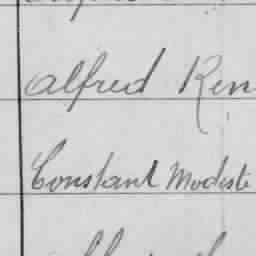 Alfred Ren
Constant Modeste